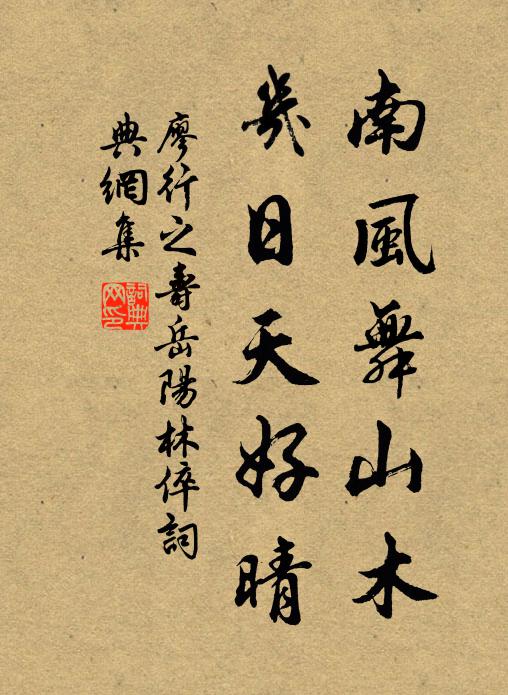 南風舞山木
幾日天好晴
廖行之壽岳陽林倅詞
典網集
詞典網印